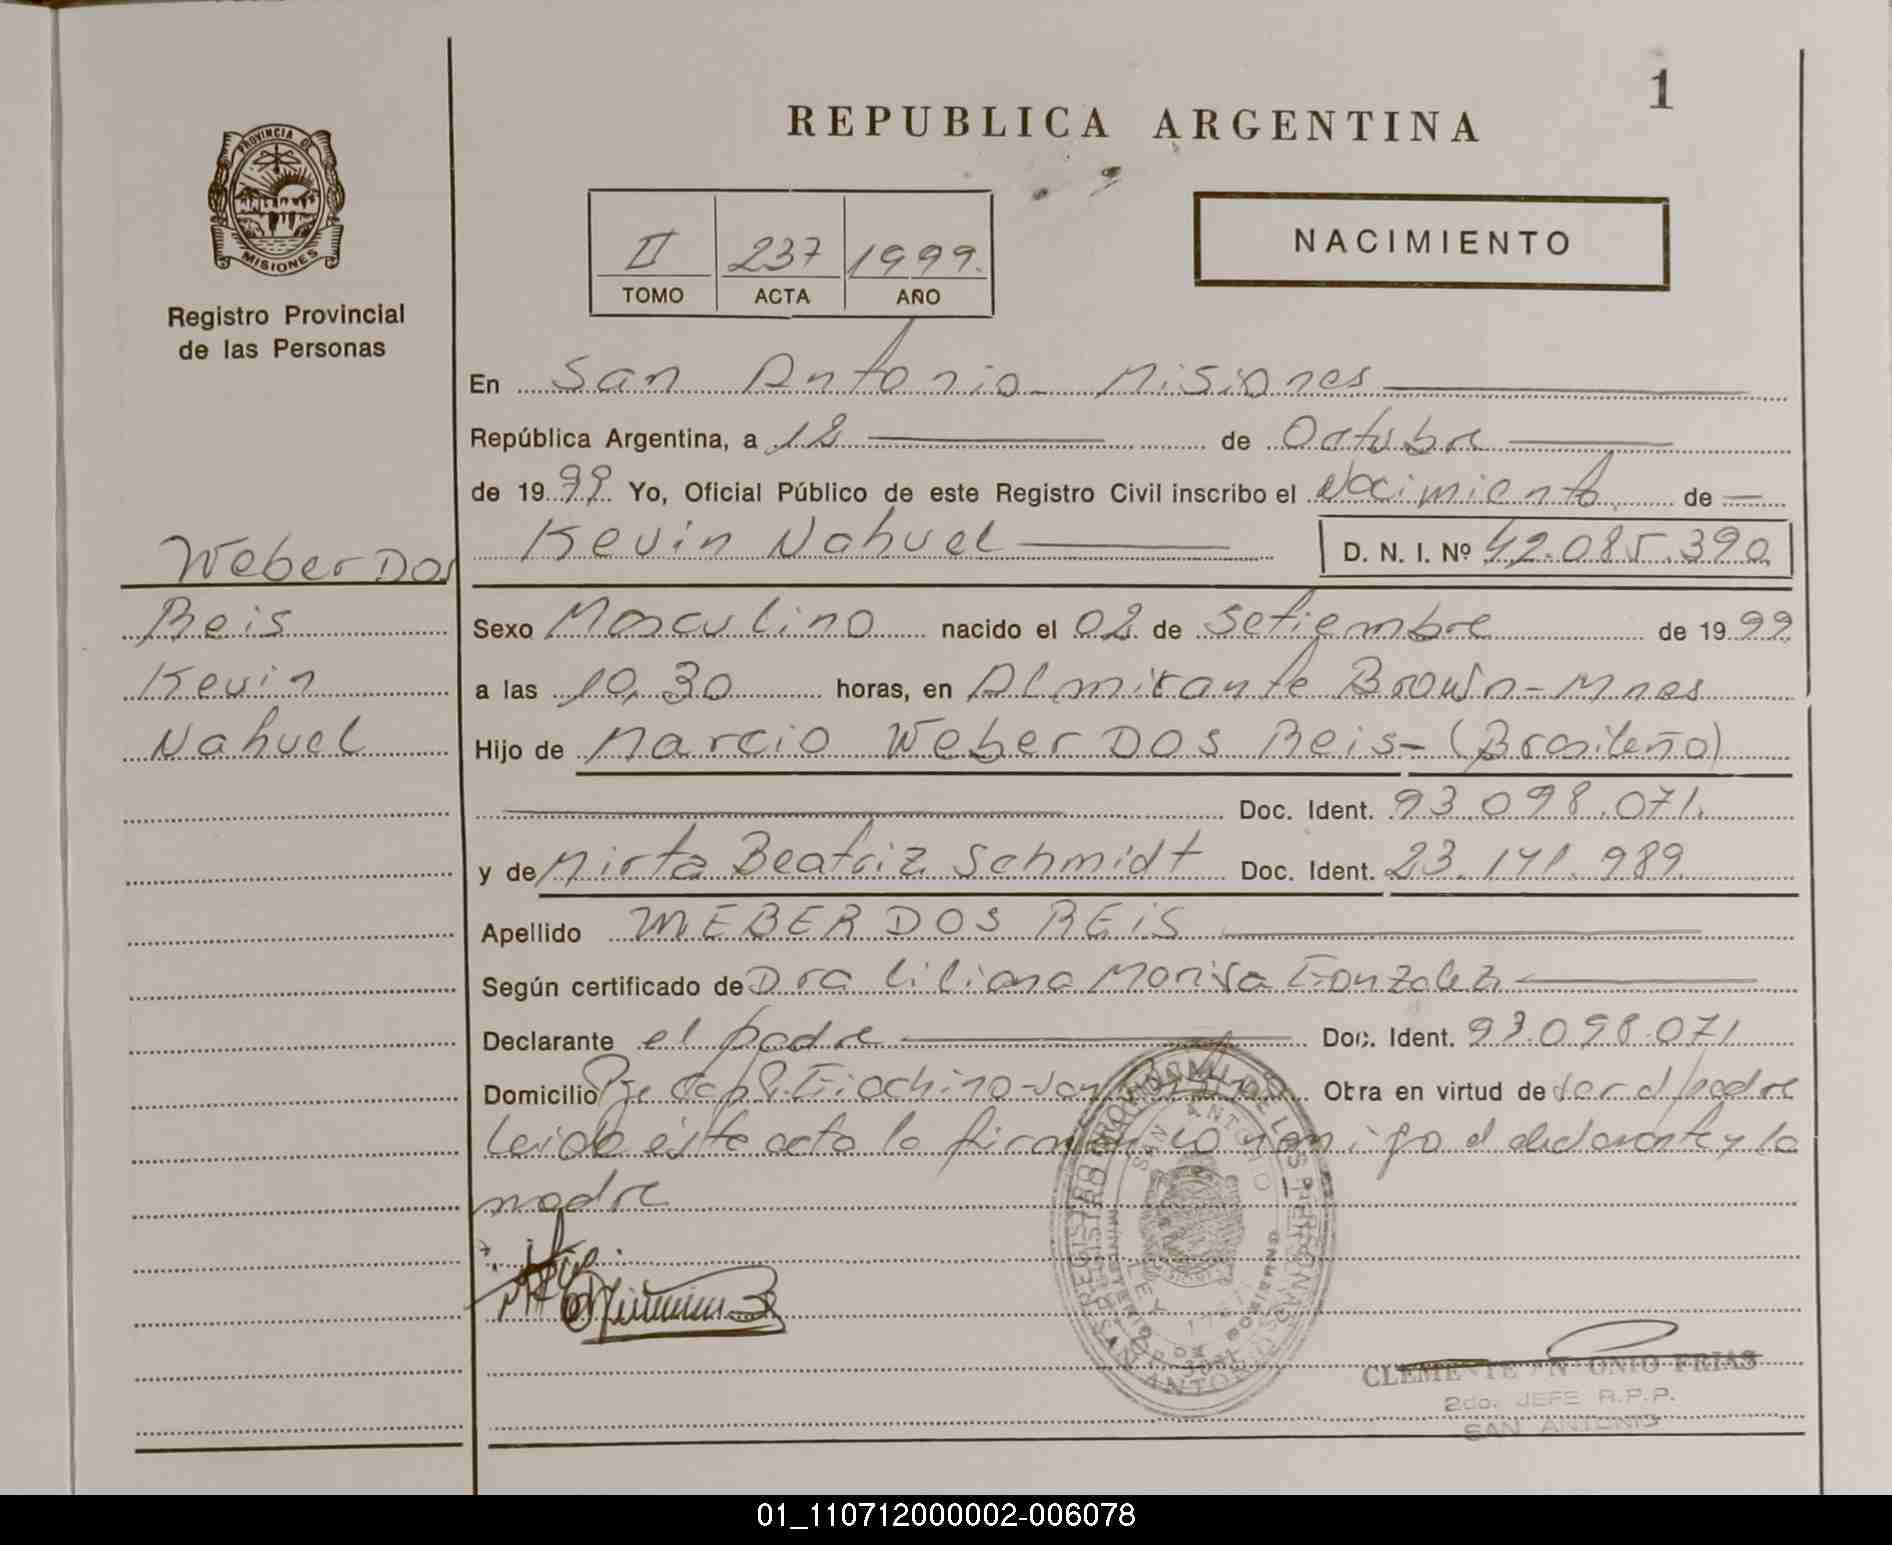 1
REPUBLICA ARGENTINA
PROVINCIA DE
MISIONES
Registro Provincial
de las Personas
II 237 1999.
TOMO ACTA AÑO
NACIMIENTO
En San Antonio - Misiones
República Argentina, a 12 de Octubre
de 1999. Yo, Oficial Público de este Registro Civil inscribo el Nacimiento de
Kevin Nahuel D. N. I. Nº 42.085.390
Weber Dos
Reis
Kevin
Nahuel
Sexo Masculino nacido el 02 de Setiembre de 1999
a las 10,30 horas, en Almirante Brown - Mnes
Hijo de Marcio Weber Dos Reis - (Brasileño)
Doc. Ident. 93.098.071.
y de Mirta Beatriz Schmidt Doc. Ident. 23.171.989.
Apellido WEBER DOS REIS
Según certificado de Dra Liliana Marisa Gonzalez
Declarante el padre Doc. Ident. 93.098.071
Domicilio Giachino - San Antonio Obra en virtud de ser el padre
Leida éste acta la firman conmigo el declarante y la
madre
REGISTRO PROVINCIAL DE LAS PERSONAS
SAN ANTONIO
CLEMENTE ANTONIO FRIAS
2do. JEFE R.P.P.
SAN ANTONIO
01_110712000002-006078